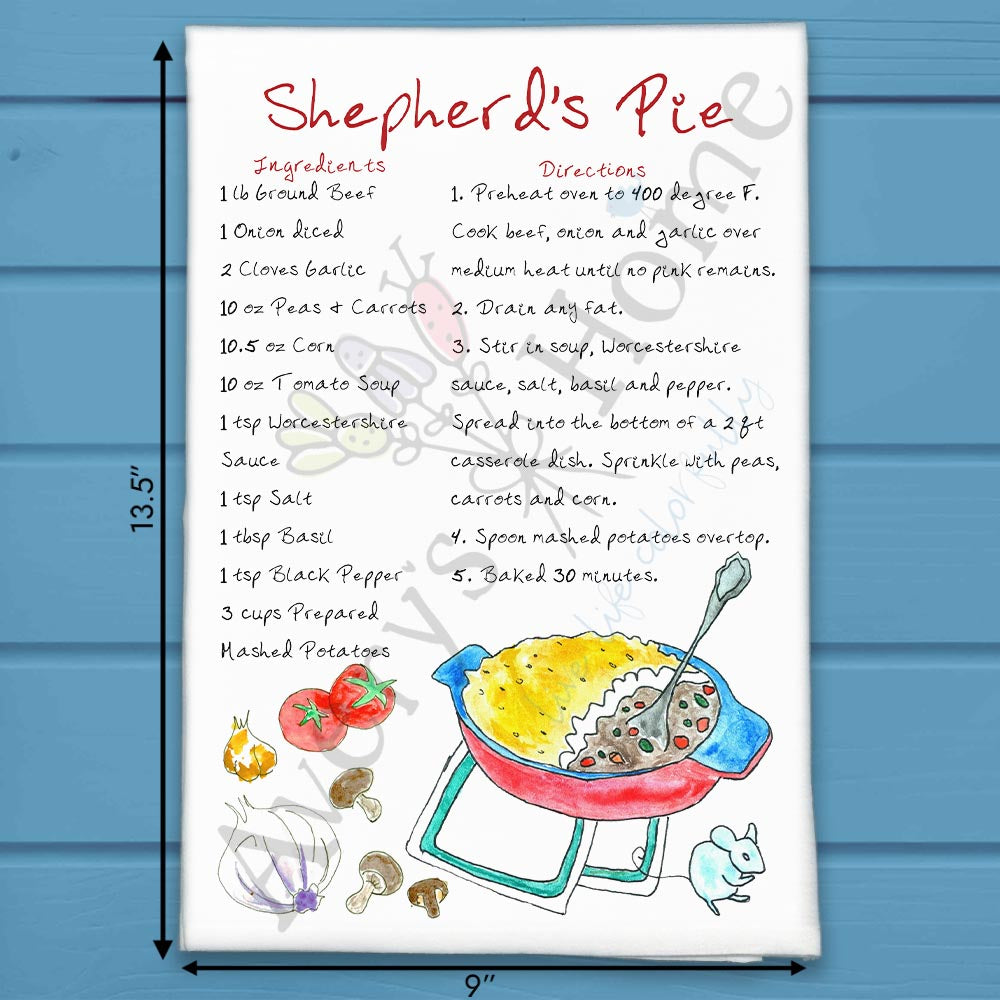 Shepherd's Pie
Ingredients
1 lb Ground Beef
1 Onion diced
2 Cloves Garlic
10 oz Peas & Carrots
10.5 oz Corn
10 oz Tomato Soup
1 tsp Worcestershire
Sauce
1 tsp Salt
1 tbsp Basil
1 tsp Black Pepper
3 cups Prepared
Mashed Potatoes
Directions
1. Preheat oven to 400 degree F.
Cook beef, onion and garlic over
medium heat until no pink remains.
2. Drain any fat.
3. Stir in soup, Worcestershire
sauce, salt, basil and pepper.
Spread into the bottom of a 2 qt
casserole dish. Sprinkle with peas,
carrots and corn.
4. Spoon mashed potatoes overtop.
5. Baked 30 minutes.
Avery's Home
live life colorfully
13.5"
9"